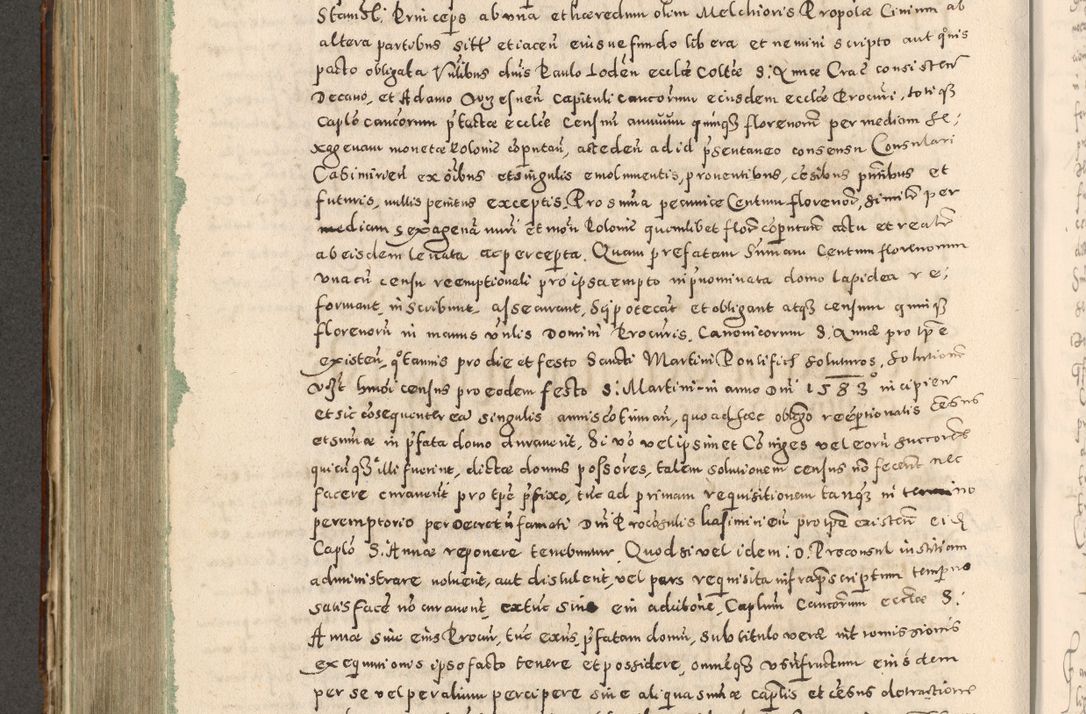 Stanisl. Princeps ab una et hæredum olim Melchioris Propolæ Civium ab
altera partibus sitæ et iacen eiusue fundo libera et nemini scripto aut q̊uis
pacto obligata Vnlibus dnis Paulo Loden ecclæ Coltæ S: Annæ Crac consisten
Decano, et Adamo Capituli cancorum eiusdem ecclæ Procuri, toti qȝ
Caplo canconrum ptactæ ecclæ Censum annuum quinqȝ florenorum per mediam se/
xagenam monetæ Polonic coputan, acceden ad id psentaneo consensu Consulari
Casimirien ex oibus et singulis emolimentis, proventibus, cesibus pntibus et
futuris, nullis penitus exceptis. Pro suma pecuniæ Centum florenor, similr per
mediam sexagena nuri et mon Polonic quemlibet flor coputan actu et realr
ab eisdem levata ac percepta. Quam prefatam Summam Centum florenorum
vnacu censu reemptionali pro ipsa empto in pnominata domo lapidea re/
formant, inscribunt, assecurant, Hypotecat et obligant atqȝ censum quinqȝ
florenoru in manus vnlis Domini Procuris Canonicorum S. Annæ pro tpe
existen, q̊tannis pro die et festo Sancti Martini Pontificis soluturos, solutione
vost hmoi census pro eodem festo S: Martini in anno Dni 1583 incipien
et sic cosequenter ea singulis annis cotinuan, quoad hæc obligo reeptionalis census
et sumæ in pfata domo duraverit, Si vo vel ipsimet Coniges vel eoru successores
quicuqȝ illi fuerint, dictæ domus possores, talem solutionem census no fecerit nec
facere curaverit pro tpe pfixo, tuc ad primam requisitionem tanqȝ in termino
peremptorio per Decretu famati Dni Procosulis Casimirien pro tpe existen eidē
Caplo S. Annæ reponere tenebuntur Quod si vel idem: D. Proconsul iustitiam
administrare noluerit, aut distulerit, vel pars requisita infrapscriptum tempus
satisface no curaverit extuc sine ein aditione, Caplum Cancorum ecclæ S:
Annæ sive eius Procur, tuc exns, pfatam domu, sub titulo veræ intromissionis
exequutionis ipso facto tenere et possidere, omneqȝ vsufructum eiusdem
per se vel per alium percipere sine aliqua sumæ caplis et cesus detractione